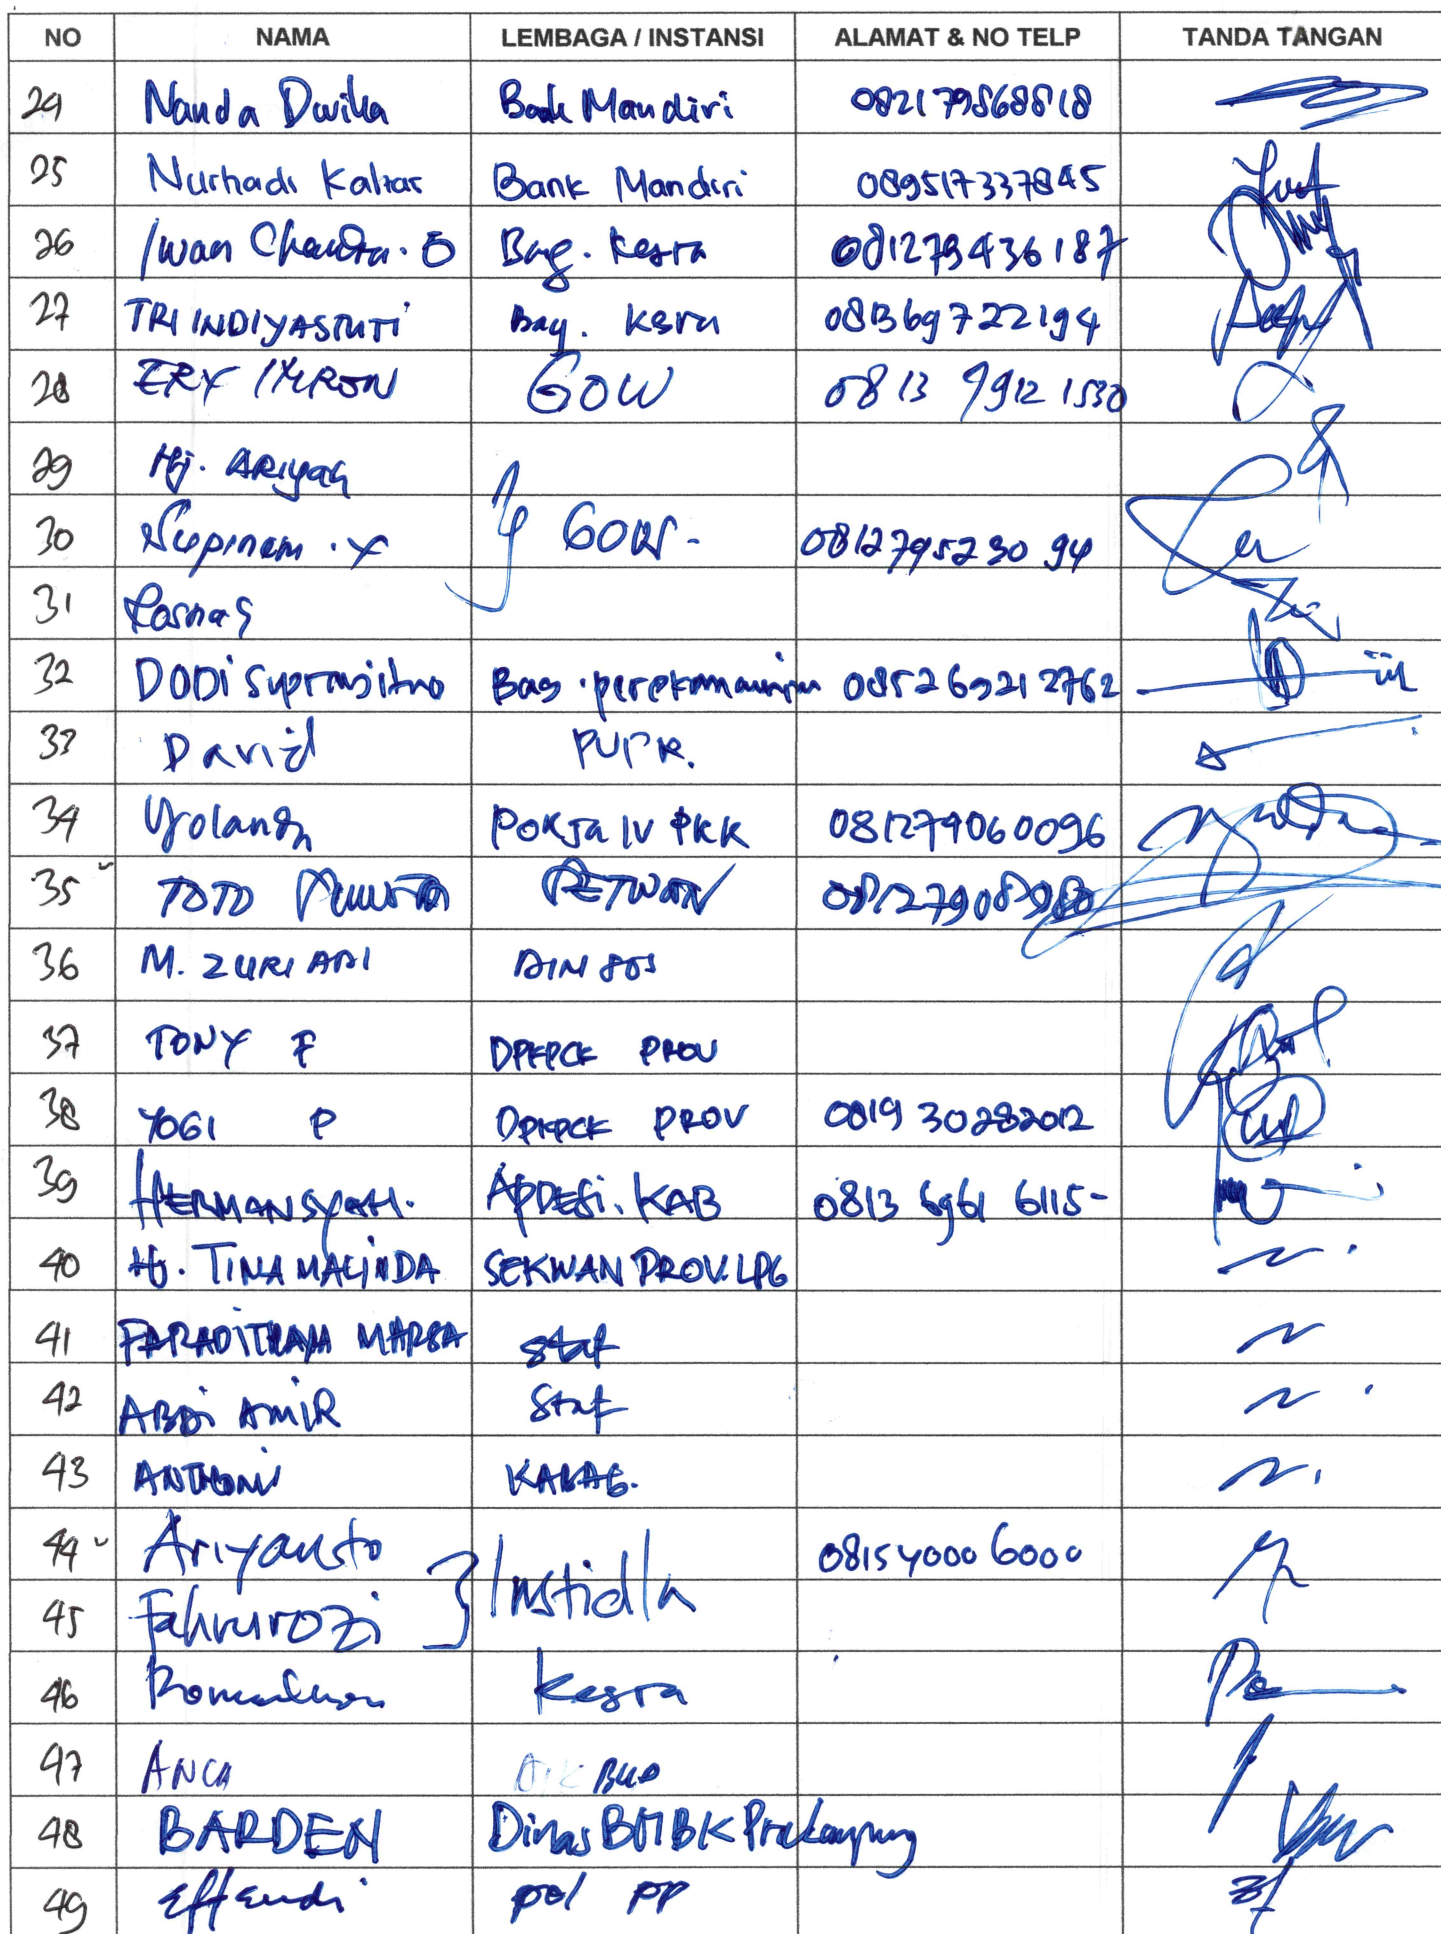 NO NAMA LEMBAGA / INSTANSI ALAMAT & NO TELP TANDA TANGAN
24 Nanda Dwika Bank Mandiri 082179868818
25 Nurhadi Bank Mandiri 089517337845
26 Iwan Chandra. Bag. Kesra 081279436187
27 TRI INDIYASTUTI Bag. Kesra 081369722194
28 ERY IMRON GOW 0813 9912 1530
29 Hj. ARiyah
30 GOW. 081279523094
31 Rosnas
32 DODi Suprayitno Bag. 085269212762
33 David PUPR.
34 Yolanda POKJA IV PKK 081279060096
35 TOTO
36 M. ZURIADI DINSOS
37 TONY F DPKPCK PROV
38 YOGI P DPKPCK PROV 0819 30282012
39 HERMANSYAH. APDESi. KAB 0813 6961 6115-
40 Hj. TINA MALINDA SEKWAN PROV. LPG
41 staf
42 ABDi AMiR Staf
43 ANTHONi KABAG.
44 Ariyanto 08154000 6000
Instidla
45 Fahrurozi
46 Kesra
47 ANCA
48 BARDEN Dinas BMBK
49 Effendi pol pp